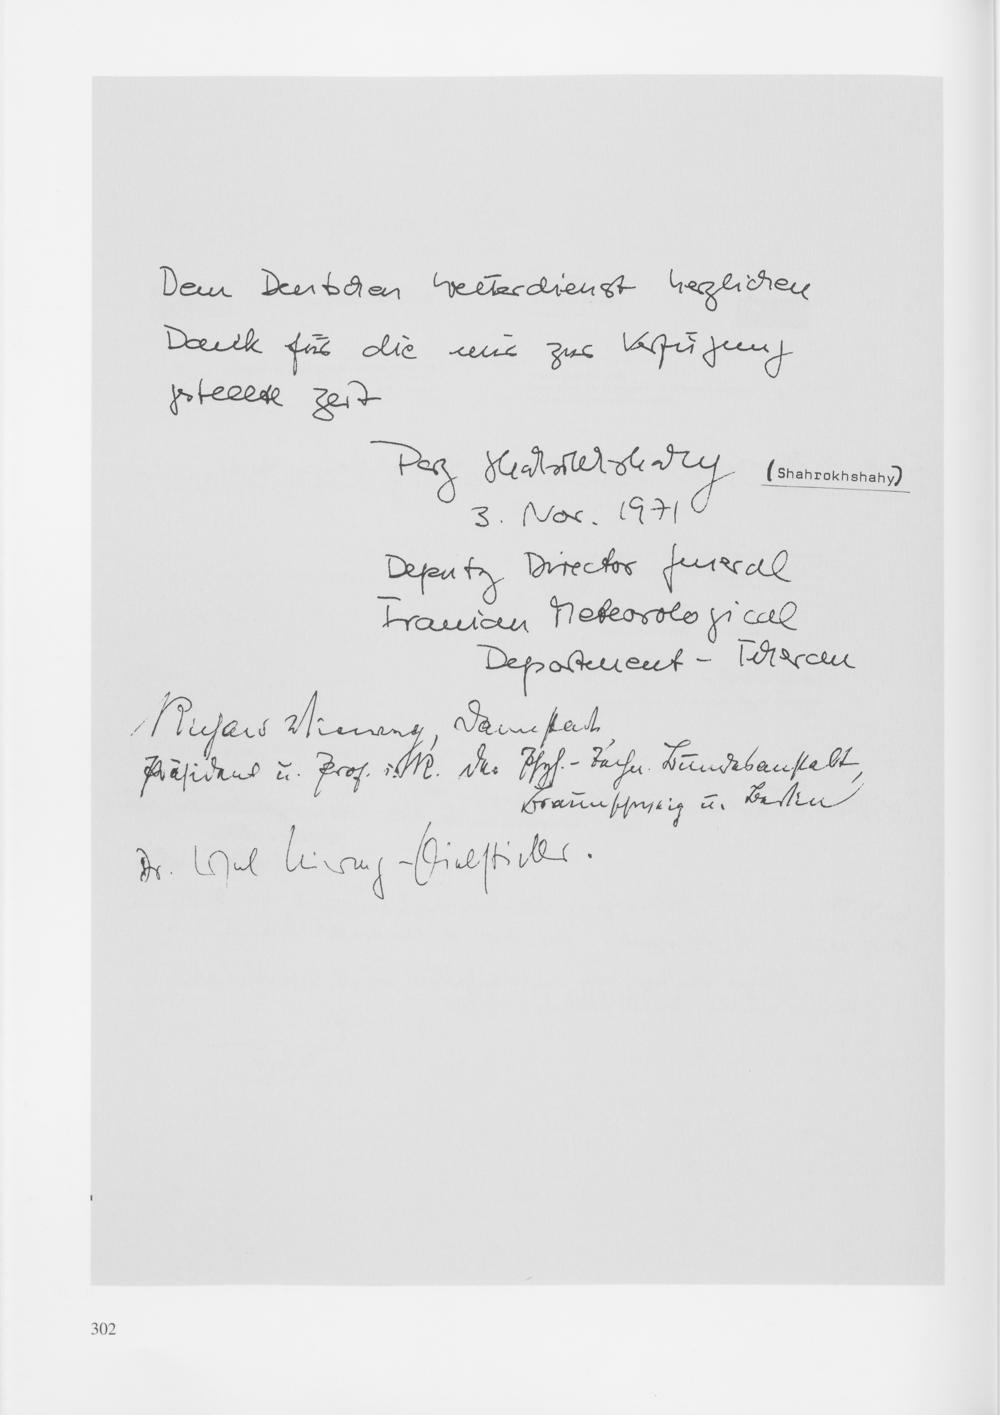 Dem Deutschen Wetterdienst herzlichen
Dank für die mir zur Verfügung
gestellte Zeit
Shahrokhshahy (Shahrokhshahy)
3. Nov. 1971
Deputy Director General
Iranian Meteorological
Department - Teheran
Richard Vieweg, Darmstadt,
Präsident u. Prof. i. R. der Phys.-Techn. Bundesanstalt,
Braunschweig u. Berlin
Dr.
302